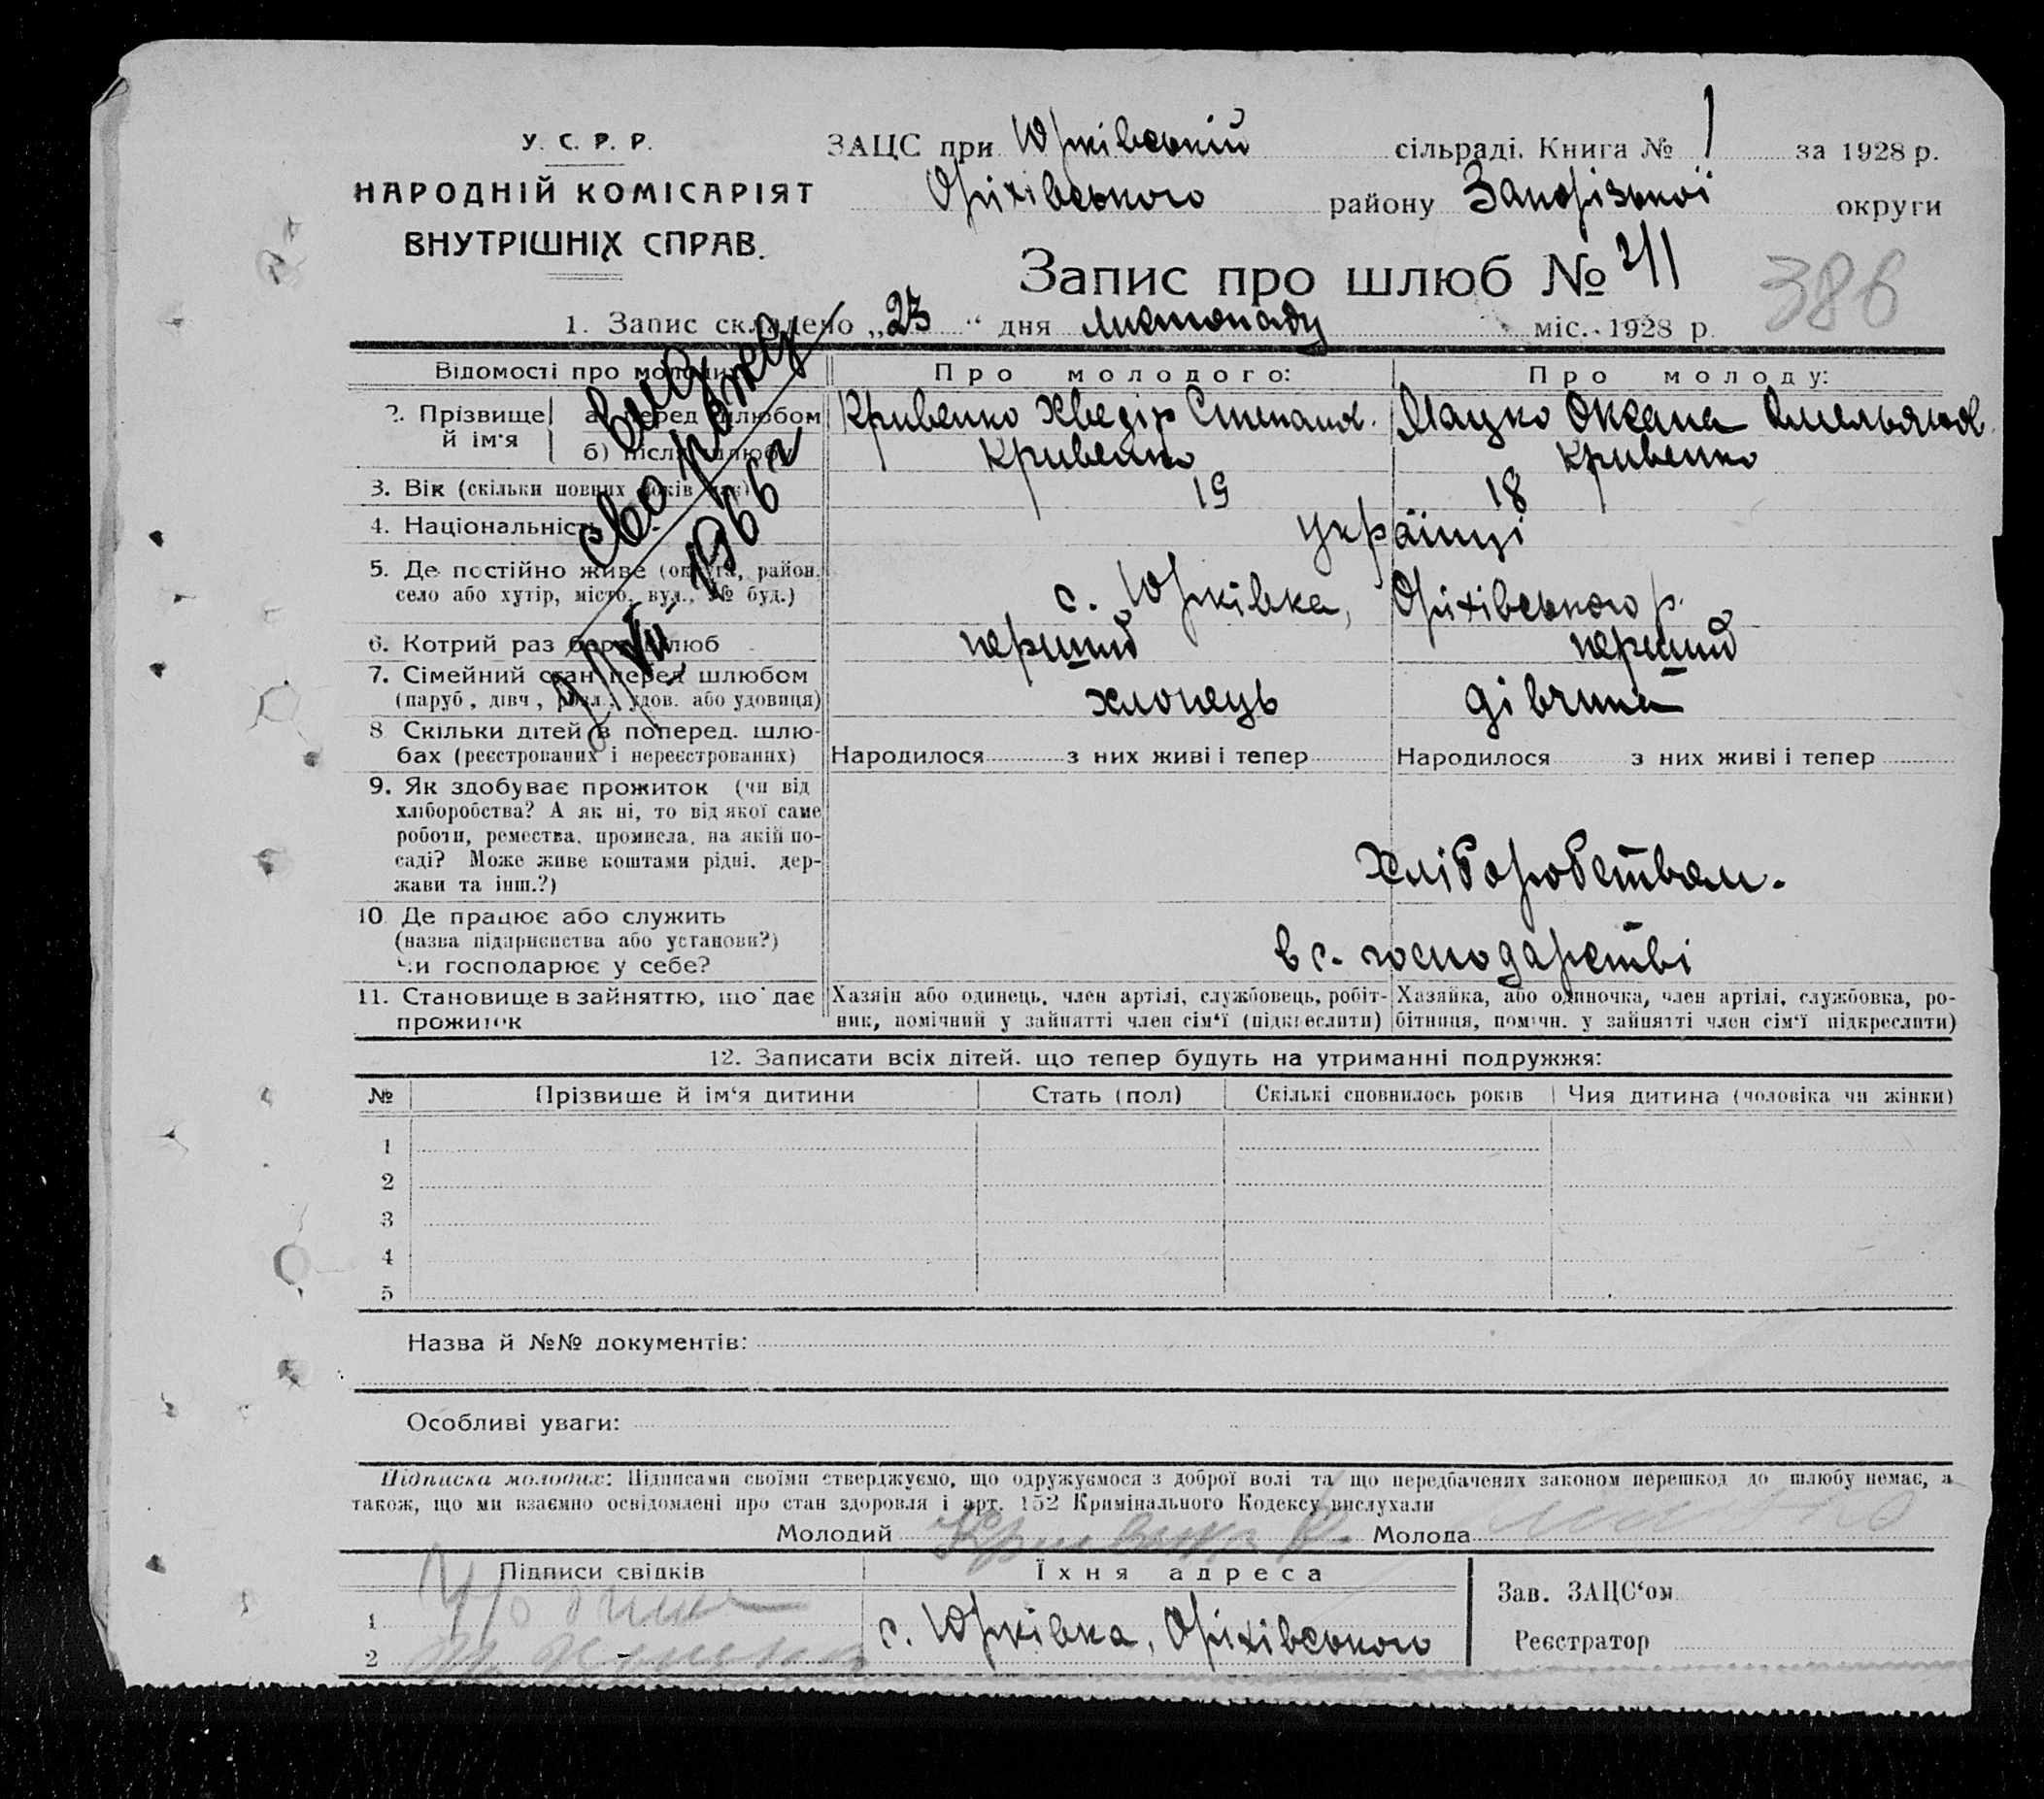 У. С. Р. Р.
НАРОДНІЙ КОМІСАРІЯТ
ВНУТРІШНІХ СПРАВ.
ЗАЦС при Юрківській сільраді. Книга № 1 за 1928 р.
Оріхівського району Запорізької округи
Запис про шлюб № 211
386
1. Запис складено „23“ дня листопаду міс. 1928 р.
Відомості про молодих
Про молодого:
Про молоду:
2. Прізвище й ім'я
а) перед шлюбом
Кривенко Хведір Степанов.
Мацко Оксана Омельянов.
б) після шлюбу
Кривенко
Кривенко
3. Вік (скільки повних років має)
19
18
4. Національність
українці
5. Де постійно живе (округа, район,
село або хутір, місто, вул., № буд.)
с. Юрківка, Оріхівського р.
6. Котрий раз бере шлюб
перший
перший
7. Сімейний стан перед шлюбом
(паруб, дівч, розл., удов. або удовиця)
хлопець
дівчина
8 Скільки дітей в поперед. шлю-
бах (реєстрованих і нереєстрованих)
Народилося з них живі і тепер
Народилося з них живі і тепер
9. Як здобуває прожиток (чи від
хліборобства? А як ні, то від якої саме
роботи, ремества, промисла, на якій по-
саді? Може живе коштами рідні, дер-
жави та інш.?)
хліборобством.
10 Де працює або служить
(назва підприємства або установи?)
Чи господарює у себе?
в с. господарстві
11. Становище в зайняттю, що дає
прожиток
Хазяїн або одинець, член артілі, службовець, робіт-
ник, помічний у зайнятті член сім'ї (підкреслити)
Хазяйка, або одиночка, член артілі, службовка, ро-
бітниця, помічн. у зайнятті член сім'ї підкреслити)
свид
1966 г
12. Записати всіх дітей, що тепер будуть на утриманні подружжя:
№ Прізвище й ім'я дитини Стать (пол) Скількі сповнилось років Чия дитина (чоловіка чи жінки)
1
2
3
4
5
Назва й №№ документів:
Особливі уваги:
Підписка молодих: Підписами своїми стверджуємо, що одружуємося з доброї волі та що передбачених законом перешкод до шлюбу немає, а
також, що ми взаємно освідомлені про стан здоровля і арт. 152 Кримінального Кодексу вислухали
Молодий Молода
Підписи свідків
Їхня адреса
Зав. ЗАЦС'ом
1
с. Юрківка, Оріхівського
Реєстратор
2